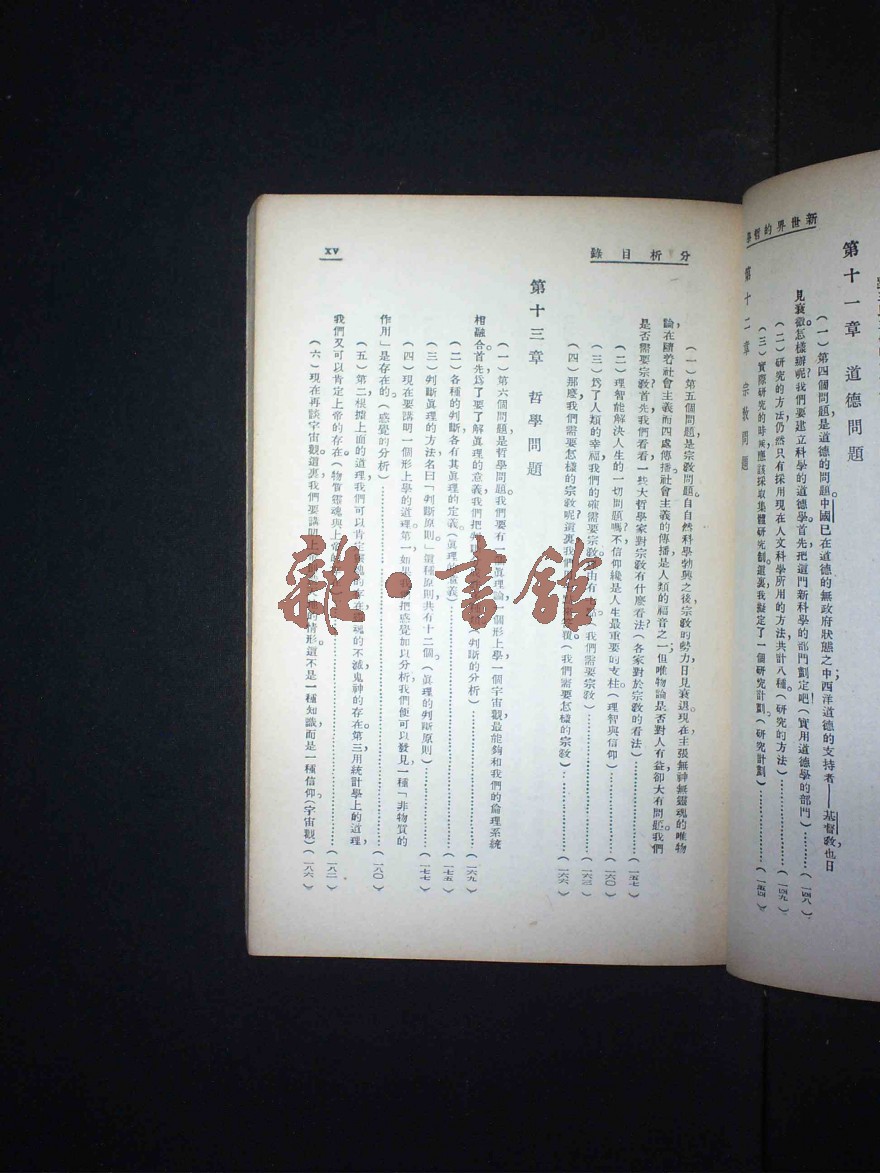 新世界的哲學
第十一章 道德問題
(一)第四個問題是道德的問題。中國已在道德的無政府狀態之中,西洋道德的支持者——基督教也日
見衰微。怎樣辦呢?我們要建立科學的道德學。首先,把這門新科學的部門劃定吧(實用道德學的部門)…………(一四八)
(二)研究的方法,仍然只有採用現在人文科學所用的方法,共計八種。(研究的方法)…………(一四九)
(三)實際研究的時候,應該採取集體研究制。這裏我擬定了一個研究計劃。(研究計劃)…………(一五四)
第十二章 宗教問題
分析目錄
(一)第五個問題是宗教問題。自自然科學勃興之後,宗教的勢力日見衰退。現在主張無神無靈魂的唯物
論,在隨着社會主義而四處傳播。社會主義的傳播是人類的福音之一;但唯物論是否對人有益,卻大有問題。我們
是否需要宗教?首先,我們看看一些大哲學家對宗教有什麼看法?(各家對於宗教的看法)…………(一五七)
(二)理智能解決人生的一切問題嗎?不,信仰纔是人生最重要的支柱。(理智與信仰)…………(一六〇)
(三)爲了人類的幸福,我們的確需要宗教。由有(我們需要宗教)…………(一六三)
(四)那麼,我們需要怎樣的宗教呢?這裏我們(我們需要怎樣的宗教)…………(一六六)
第十三章 哲學問題
(一)第六個問題是哲學問題。我們要有一個眞理論,一個形上學,一個宇宙觀,最能夠和我們的倫理系統
相融合。首先,爲了要了解眞理的意義,我們把判(判斷的分析)…………(一六九)
(二)各種的判斷各有其眞理的定義。(眞理的意義)…………(一七五)
(三)判斷眞理的方法,名曰「判斷原則」。這種原則共有十二個。(眞理的判斷原則)…………(一七七)
(四)現在要講明一個形上學的道理。第一,如果我們把感覺加以分析,我們便可以發見,一種「非物質的
作用」是存在的。(感覺的分析)…………(一八〇)
(五)第二,根據上面的道理,我們可以肯定靈魂的存在,靈魂的不滅,鬼神的存在。第三,用統計學上的道理,
我們又可以肯定上帝的存在。(物質靈魂與上帝)…………(一八二)
(六)現在再談宇宙觀。這裏我們要講明上的情形。這不是一種知識,而是一種信仰。(宇宙觀)(一八六)
XV
雜·書館